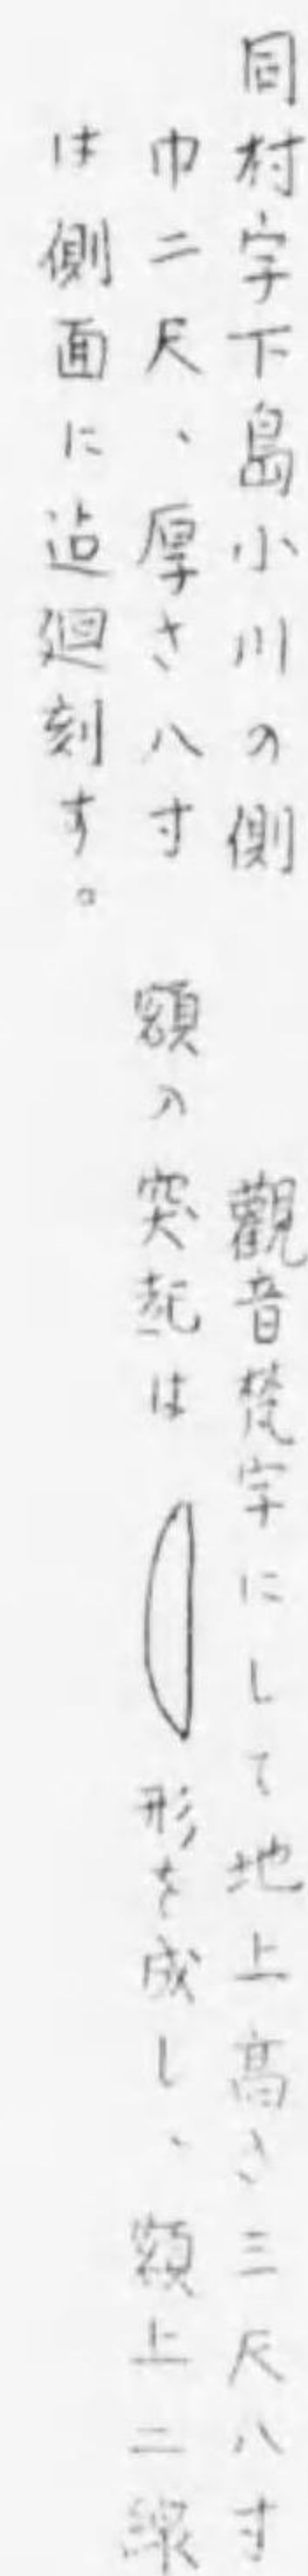 同村字下島小川の側　觀音梵字にして地上高さ三尺八寸
巾二尺、厚さ八寸　額の突起は　形を成し、額上二線
は側面に迄廻刻す。